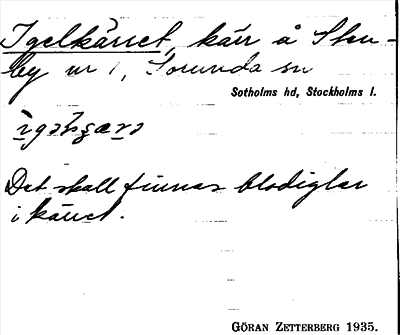 Igelkärret, kärr å Sten-
by nr 1, Sorunda sn
Sotholms hd, Stockholms l.
Det skall finnas blodiglar
i kärret.
GÖRAN ZETTERBERG 1935.